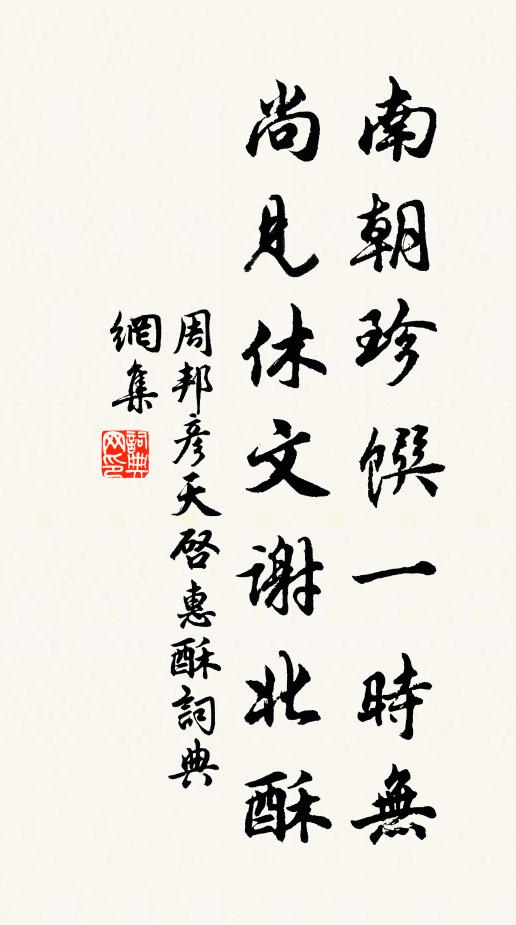 南朝珍馔一時無
尚見休文謝北酥
周邦彦天啓惠酥詞典
網集
詞典网印